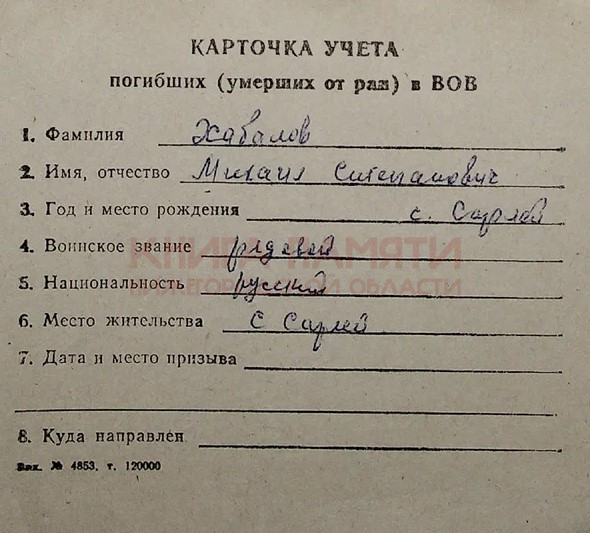 КАРТОЧКА УЧЕТА
погибших (умерших от ран) в ВОВ
1. Фамилия Хабалов
2. Имя, отчество Михаил Степанович
3. Год и место рождения с. Сарлей
4. Воинское звание рядовой
КНИГА ПАМЯТИ
5. Национальность русский
НИЖЕГОРОДСКОЙ ОБЛАСТИ
6. Место жительства с Сарлей
7. Дата и место призыва
8. Куда направлен
Зак. № 4853, т. 120000